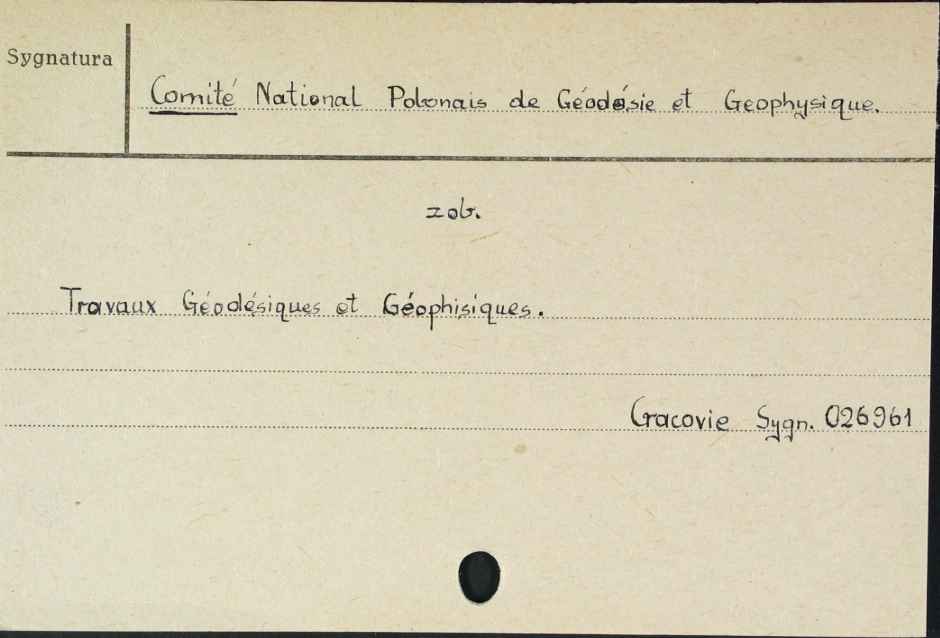 Sygnatura
Comité National Polonais de Géodésie et Geophysique.
zob.
Travaux Géodésiques et Géophisiques.
Cracovie Sygn. 026961